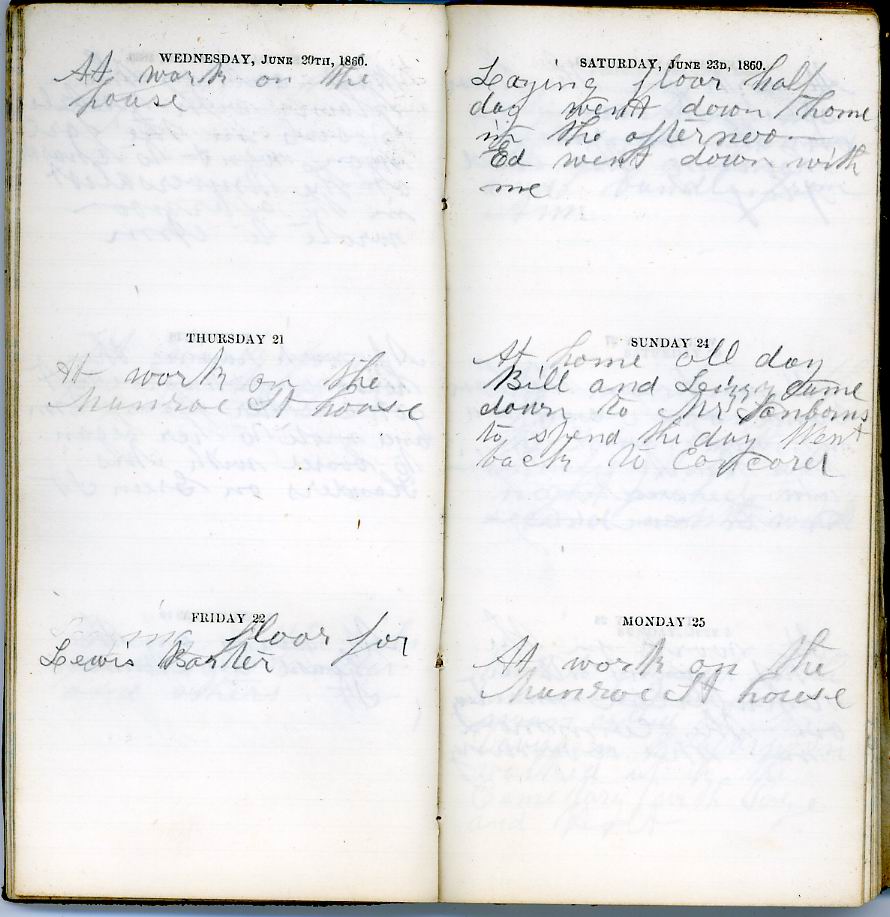 WEDNESDAY, JUNE 20TH, 1860.
At work on the
house
THURSDAY 21
At work on the
Munroe St house
FRIDAY 22
Laying floor for
Lewis Baxter
SATURDAY, JUNE 23D, 1860.
Laying floor half
day went down home
in the afternoo
Ed went down with
me
SUNDAY 24
At home all day
Bill and Lizzy came
down to Mr Sanborns
to spend the day Went
back to Concord
MONDAY 25
At work on the
Munroe St house